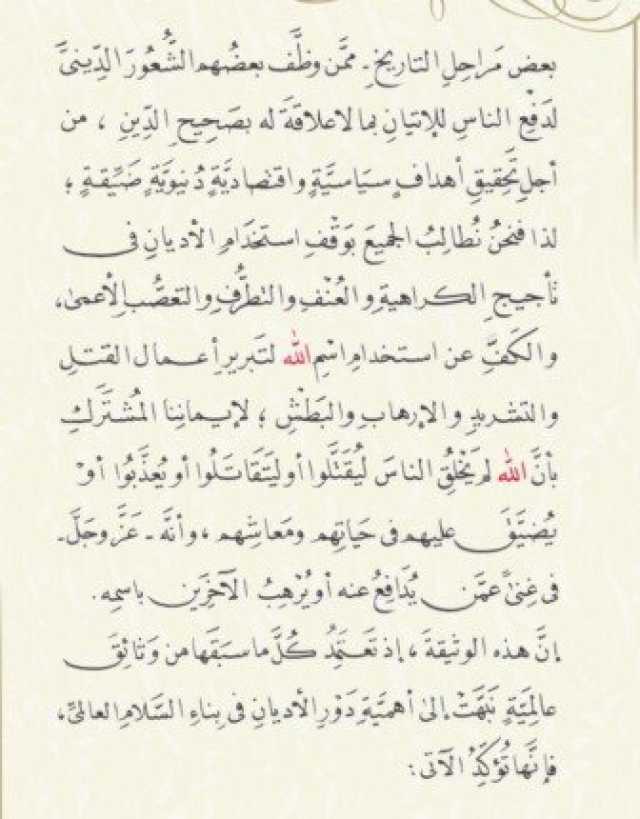 بعض مَراحِلِ التاريخِ - ممَّن وظَّف بعضُهم الشُّعُورَ الدِّينىَّ
لدَفْعِ الناسِ للإتيانِ بما لا علاقةَ له بصَحِيحِ الدِّينِ ، من
أجلِ تَحقِيقِ أهدافٍ سياسيَّةٍ واقتصاديَّةٍ دُنيويَّةٍ ضَيِّقةٍ ؛
لذا فنحنُ نُطالِبُ الجميعَ بوَقْفِ استخدَامِ الأديانِ فى
تأجيجِ الكراهيةِ والعُنْفِ والتطرُّفِ والتعصُّبِ الأعمىٰ،
والكَفِّ عن استخدامِ اسْمِ الله لتَبريرِ أعمالِ القتلِ
والتشريدِ والإرهابِ والبَطْشِ ؛ لإيمانِنا المُشتَرَكِ
بأنَّ الله لم يَخْلُقِ الناسَ ليُقَتَّلُوا أو ليَتَقَاتَلُوا أو يُعذَّبُوا أوْ
يُضيَّقَ عليهم فى حَيَاتِهم ومَعاشِهم ، وأنَّه - عَزَّ وجَلَّ -
فى غِنىً عمَّن يُدَافِعُ عنه أو يُرْهِبُ الآخَرِين باسمِه.
إنَّ هذه الوثيقةَ ، إذ تَعتَمِدُ كُلَّ ما سبَقَها من وَثائِقَ
عالَمِيَّةٍ نَبَّهَتْ إلىٰ أهميَّةِ دَوْرِ الأديانِ فى بِناءِ السَّلامِ العالمىِّ،
فإنَّها تُؤكِّدُ الآتى :